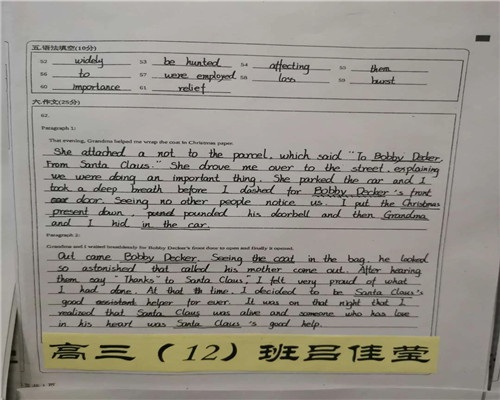 五.语法填空(10分)
52 widely 53 be hunted 54 affecting 55 them
56 to 57 were employed 58 loss 59 burst
60 importance 61 relief
六.作文(25分)
62.
Paragraph 1:
That evening, Grandma helped me wrap the coat in Christmas paper.
She attached a not to the parcel, which said "To Bobby Decker,
From Santa Claus." She drove me over to the street, explaining
we were doing an important thing. She parked the car and I
took a deep breath before I dashed for Bobby Decker's front
door. Seeing no other people notice us, I put the Christmas
present down, pounded his doorbell and then Grandma
and I hid in the car.
Paragraph 2:
Grandma and I waited breathlessly for Bobby Decker's front door to open and finally it opened.
Out came Bobby Decker. Seeing the coat in the bag, he looked
so astonished that called his mother come out. After hearing
them say "Thanks" to Santa Claus, I felt very proud of what
I had done. At that time, I decided to be Santa Claus's
good helper for ever. It was on that night that I
realized that Santa Claus was alive and someone who has love
in his heart was Santa Claus's good help.
高三（12）班吕佳莹